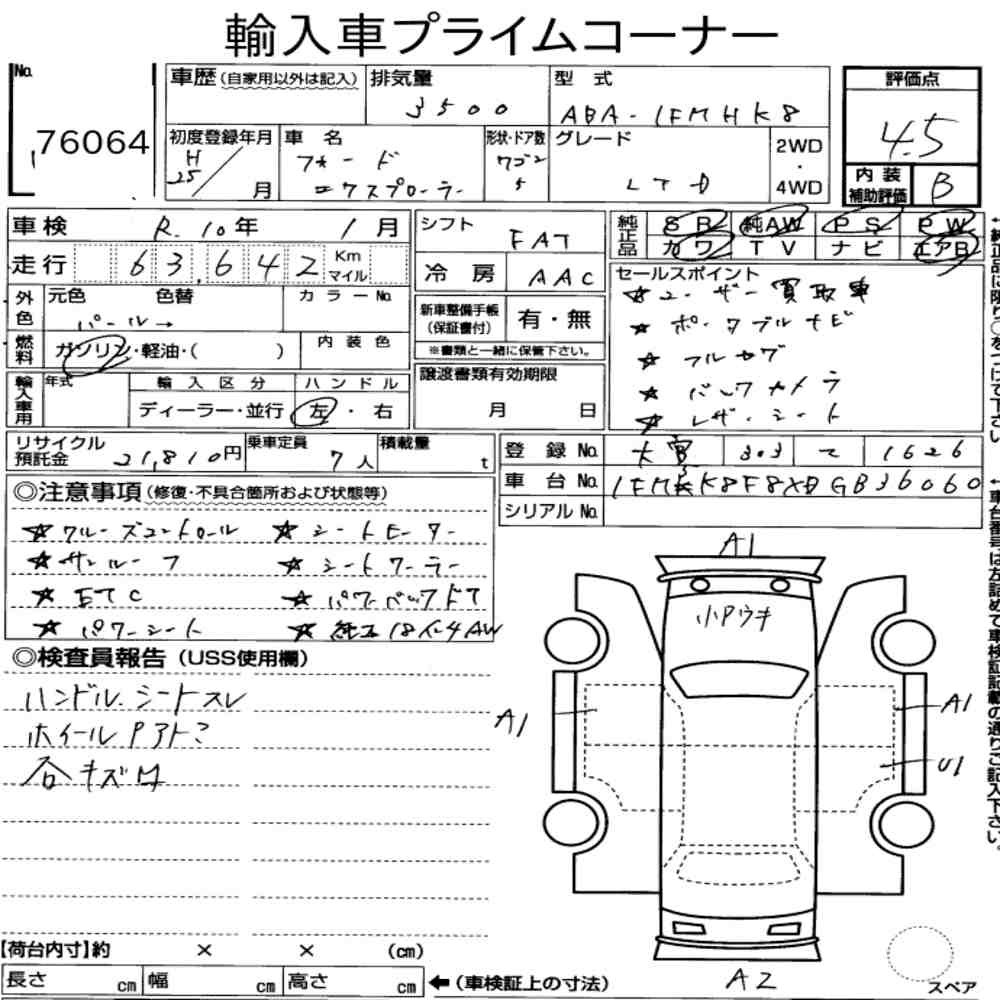 輸入車プライムコーナー
No. 76064
車歴(自家用以外は記入) 排気量 3500 型式 ABA-1FMHK8
評価点 4.5
初度登録年月 H25/ 月 車名 フォード エクスプローラー 形状・ドア数 ワゴン 5 グレード LTD 2WD・4WD
内装補助評価 B
車検 R.10年 1月
走行 63,642 Km マイル
外色 元色 色替 カラーNo.
パール→
燃料 ガソリン・軽油・( ) 内装色
輸入車用 年式 輸入区分 ハンドル
ディーラー・並行 左・右
シフト FAT
冷房 AAC
新車整備手帳(保証書付) 有・無
※書類と一緒に保管下さい。
譲渡書類有効期限
月 日
純正品 SR 純AW PS PW
カワ TV ナビ エアB
セールスポイント
☆ユーザー買取車
☆ポータブルナビ
☆フルセグ
☆バックカメラ
☆レザーシート
←純正品に限り○をつけて下さい。
リサイクル預託金 21,810円 乗車定員 7人 積載量 t
登録No. 303 1626
車台No. 1FMHK8F8XDGB36060
シリアルNo.
←車台番号は左詰めで車検証記載の通りご記入下さい。
◎注意事項(修復・不具合箇所および状態等)
☆クルーズコントロール ☆シートヒーター
☆サンルーフ ☆シートクーラー
☆ETC ☆パワーバックドア
☆パワーシート ☆純正18インチAW
◎検査員報告(USS使用欄)
ハンドル.シートスレ
ホイールPアト?
各キズ凹
A1
小Pウキ
A1
A1
U1
A2
スペア
【荷台内寸】約 × × (cm)
長さ cm 幅 cm 高さ cm ←(車検証上の寸法)